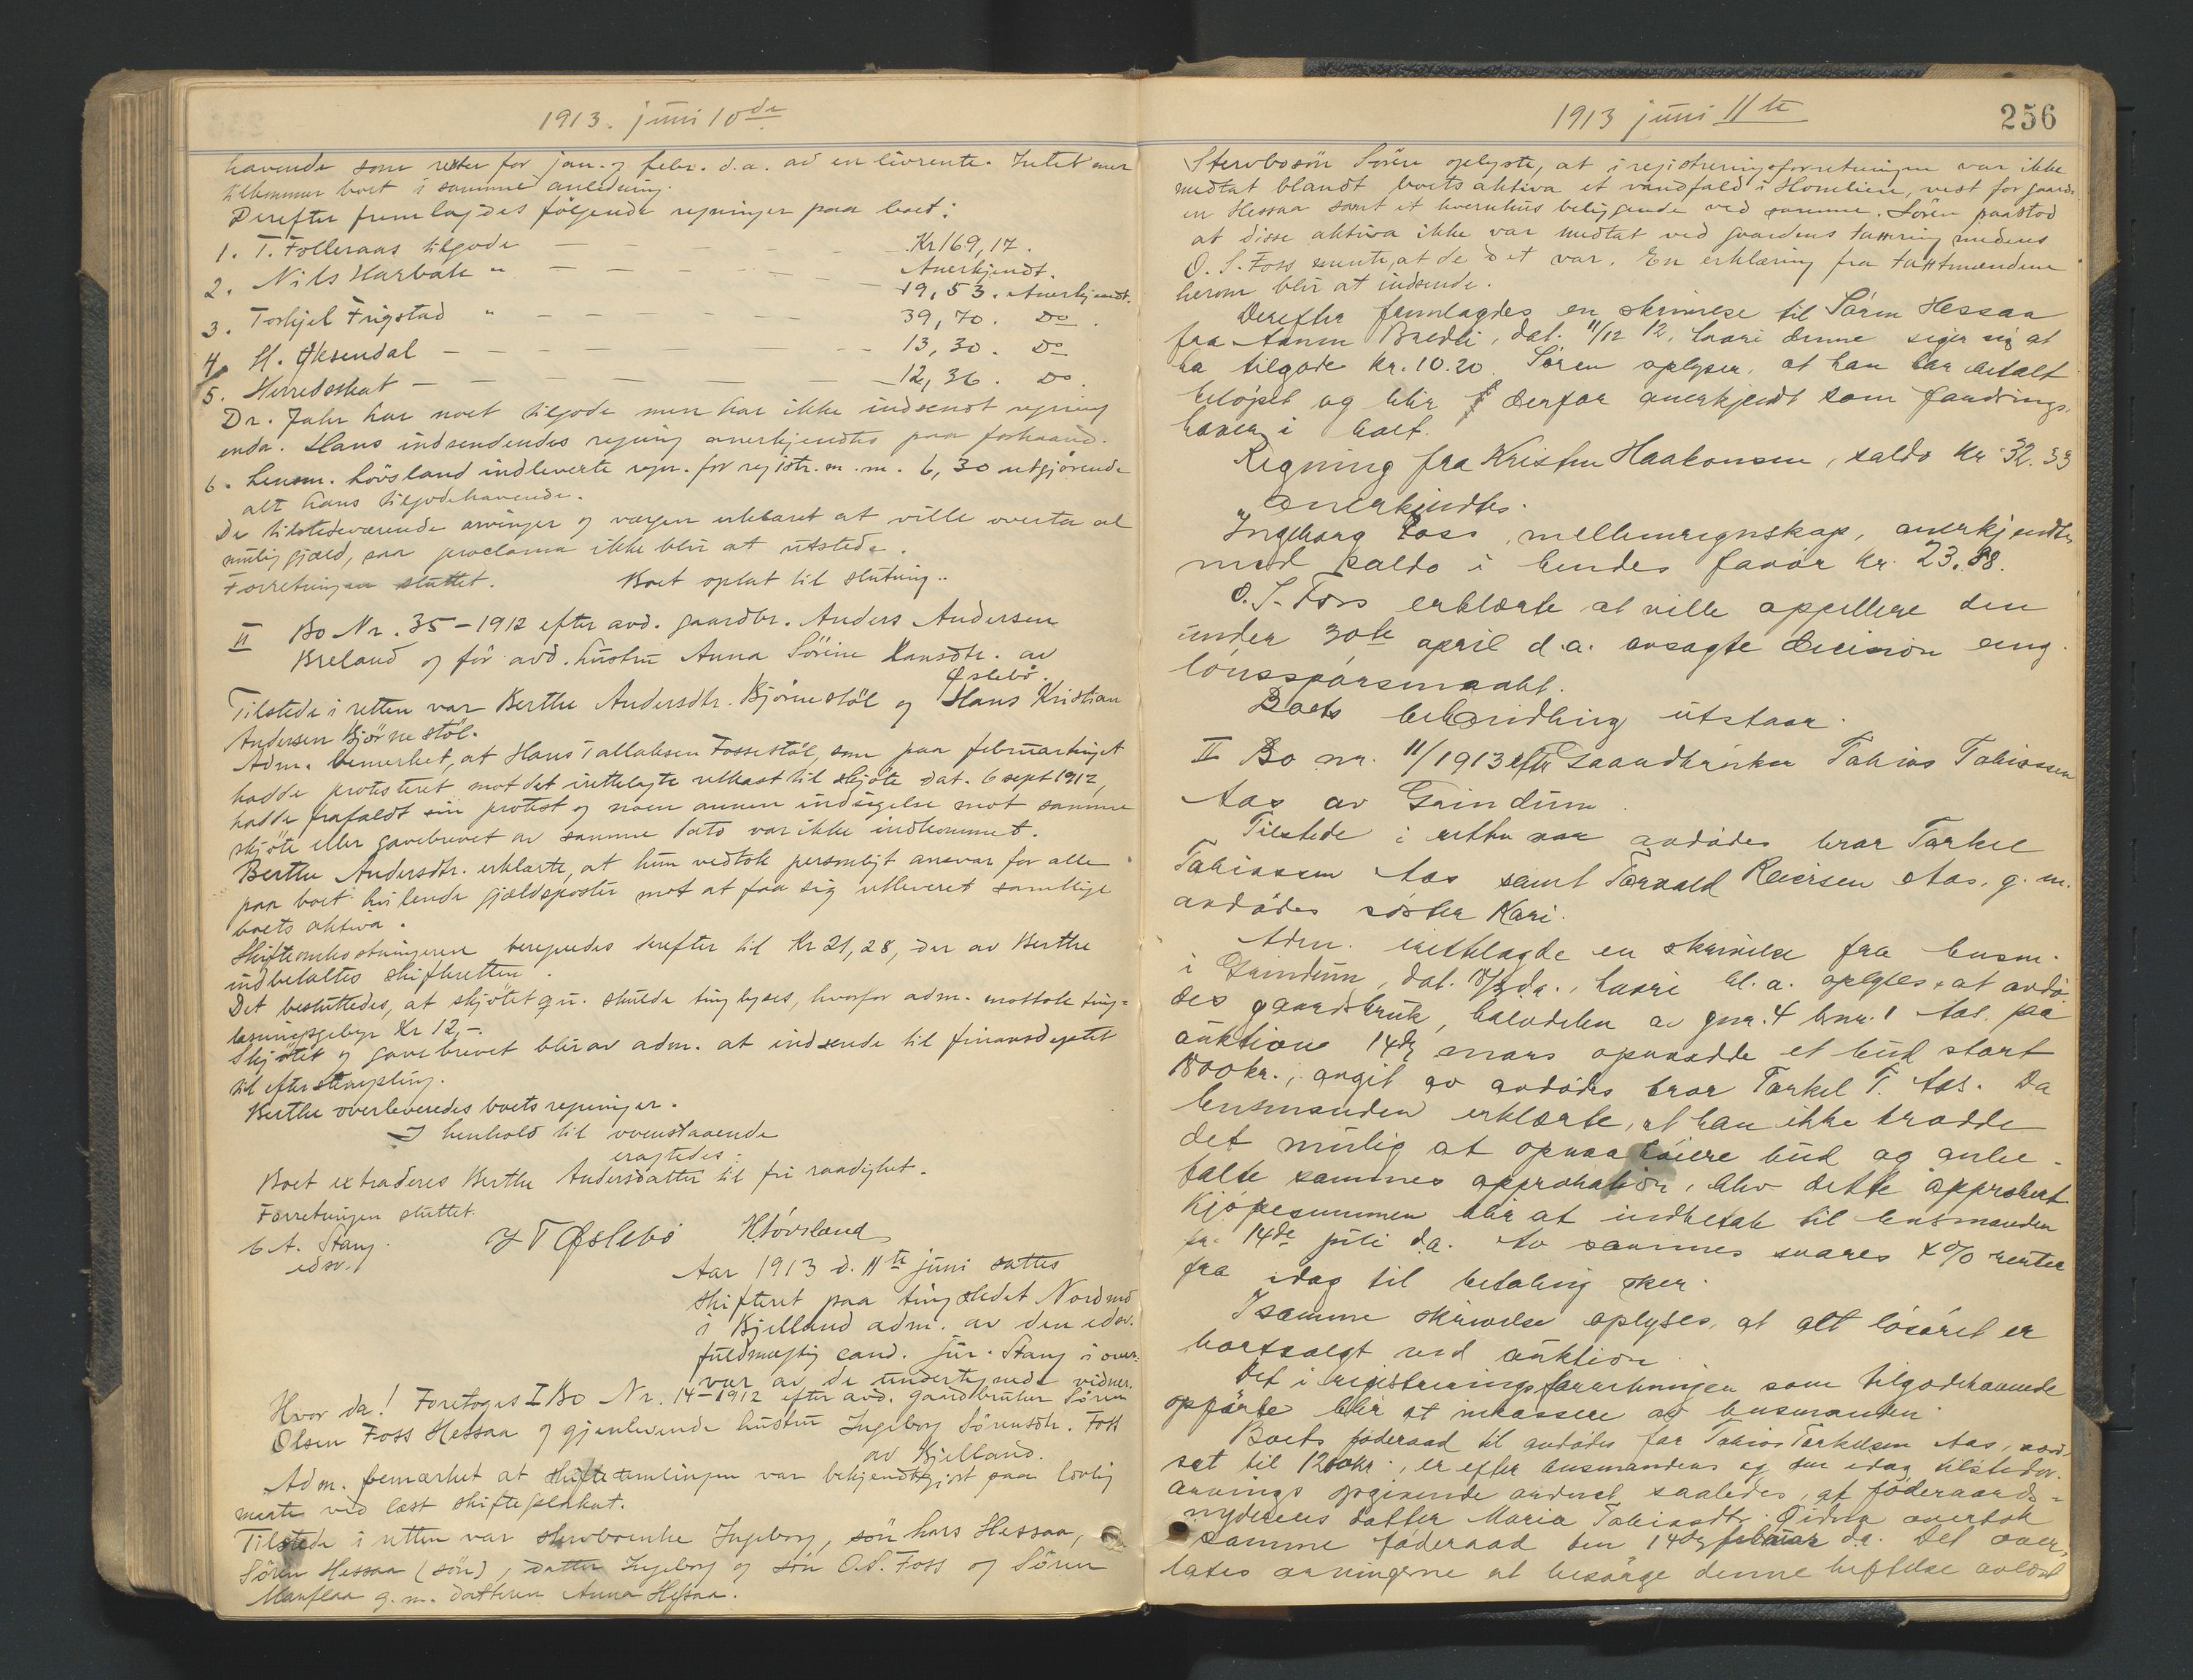 1913. juni 10de
havende som rester for jan. og febr. d.a. av en livrente. Intet mer
tilkommer boet i samme anledning.
Derefter fremlagdes følgende regninger paa boet:
1. T. Folleraas tilgode — — — — Kr 169,17.
Anerkjendt.
2. Nils Harbak " — — — — 19,53. Anerkjendt.
3. Torkjel Frigstad " — — — — 39,70. Do.
4. H. Øksendal — — — — 13,30. Do
5. Herredsskat — — — — 12,36. Do.
Dr. Jahr har noet tilgode men har ikke indsendt regning
enda. Hans indsendendes regning anerkjendtes paa forhaand.
6. Lensm. Lövsland indleverte regn. for registr. m. m. 6,30 utgjörende
alt hans tilgodehavende.
De tilstedeværende arvinger og vergen erklæret at ville overta al
mulig gjæld, saa proclama ikke blir at utstede.
Forretningen sluttet. Boet optat til slutning..
II Bo Nr. 35-1912 efter avd. gaardbr. Anders Andersen
Breland og før avd. hustru Anna Sörine Hansdtr. av
Øslebö.
Tilstede i retten var Berthe Andersdtr. Bjørnestöl og Hans Kristian
Andersen Bjørnestöl.
Adm. bemerket, at Hans Tallaksen Fossestöl, som paa februartinget
hadde protesteret mot det irettelagte utkast til skjöte dat. 6 sept 1912,
hadde frafaldt sin protest og noen annen indsigelse mot samme
skjöte eller gavebrevet av samme dato var ikke indkommet.
Berthe Andersdtr. erklærte, at hun vedtok personligt ansvar for alle
paa boet hvilende gjældsposter mot at faa sig utleveret samtlige
boets aktiva.
Skifteomkostningerne beregnedes derefter til Kr 21,28, der av Berthe
indbetaltes skifteretten.
Det besluttedes, at skjötet qu. skulde tinglyses, hvorfor adm. mottok ting=
læsningsgebyr Kr 12,-.
Skjötet og gavebrevet blir av adm. at indsende til finansdeptet
til efterstempling.
Berthe overleveredes boets regninger.
I henhold til ovenstaaende
eragtedes:
Boet extraderes Berthe Andersdatter til fri raadighet.
Forretningen sluttet.
C A. Stang
edsv. J T Øslebö H Lövsland
Aar 1913 d. 11te juni sattes
skifteret paa tingstedet Nordmo
i Bjelland adm. av den edsv.
fuldmægtig cand. jur. Stang i over=
vær av de undertegnede vidner.
Hvor da! Foretoges I Bo Nr. 14-1912 efter avd. gaardbruker Sören
Olsen Foss Hessaa og gjenlevende hustru Ingeborg Sörensdtr. Foss
av Bjelland.
Adm. bemærket at skiftesamlingen var bekjendtgjort paa lovlig
maate ved læst skifteplakat.
Tilstede i retten var stervboenke Ingeborg, sön Lars Hessaa,
Sören Hessaa (sön), datter Ingeborg og sön O.S. Foss og Sören
Manflaa g. m. datteren Anna Hessaa.
1913 juni 11te
256
Stervbosön Sören oplyste, at i registreringsforretningen var ikke
medtat blandt boets aktiva et vandfald i Homlien, vest for gaard-
en Hessaa samt et kvernhus beliggende ved samme. Sören paastod
at disse aktiva ikke var medtat ved gaardens taxering medens
O. S. Foss mente, at de det var. En erklæring fra taxtmændene
herom blir at indsende.
Derefter fremlagdes en skrivelse til Sören Hessaa
fra Bredli, dat. 11/12 12, hvori denne siger sig at
ha tilgode kr. 10.20. Sören oplyser, at han har betalt
belöpet og blir derfor anerkjendt som fordrings-
haver i boet.
Regning fra Kristen Haakonsen, saldo kr 32.33
anerkjendtes.
Ingeborg Foss, mellemregnskap, anerkjendtes
med saldo i hendes favör kr. 23.88.
O. S. Foss erklærte at ville appellere den
under 30te april d.a. avsagte decision ang.
lönsspörsmaalet.
Boets behandling utstaar.
II Bo nr. 11/1913 efter Gaardbruker Tobias Tobiassen
Aas av Grindum.
Tilstede i retten var avdödes bror Torkel
Tobiassen Aas samt Torvald Reiersen Aas, g. m.
avdödes söster Kari.
Adm. irettelagde en skrivelse fra lensm.
i Grindum, dat. d.a., hvori bl. a. oplyses, at avdö-
des gaardsbruk, halvdelen av gnr. 4 bnr. 1 Aas. paa
auktion 14de mars opnaadde et bud stort
1800 kr., avgit av avdödes bror Torkel T. Aas. Da
lensmanden erklærte, at han ikke trodde
det mulig at opnaa höiere bud og anbe-
falte sammes approbation, blev dette approbert.
Kjöpesummen blir at indbetale til lensmanden
14de juli d.a. Av sammes svares 4% renter
fra idag til betaling sker.
I samme skrivelse oplyses, at alt lösöret er
bortsolgt ved auktion.
Det i registreringsforretningen som tilgodehavende
opförte blir at inkassere av lensmanden.
Boets föderaad til avdödes far Tobias Torkelsen Aas, verd-
sat til 1200 kr., er efter lensmandens og den idag tilstedev.
arvings opgivende ordnet saaledes, at föderaads=
nyderens datter Maria Tobiasdtr. overtok
samme föderaad den 14de februar d.a. Det over-
lates arvingerne at besörge denne heftelse avlöst